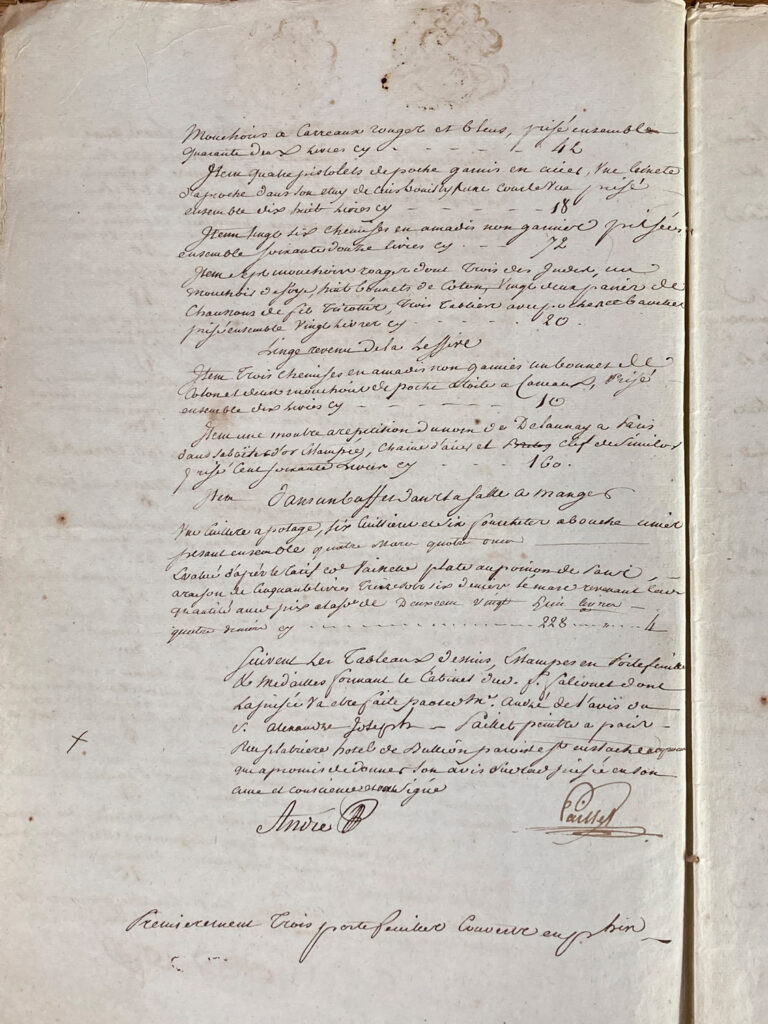 Mouchoirs a Carreaux rouges et bleus, prisé ensemble
quarante deux Livres cy - - - - 42
Item quatre pistolets de poche garnis en acier, Une Lornete
d'aproche dans son etuy de Une Courte Vue prisé
ensemble dix huit Livres cy - - - - 18
Item Vingt six chemises en amadis non garnier prisées
ensemble soixante douze livres cy - - - 72
Item sept mouchoirs rouges dont Trois des Indes, un
mouchoir de soye, huit bonnets de Coton, Vingt deux paires de
Chaussons de fil Tricotté, Trois Tabliers avec poches et bavettes
prisé ensemble Vingt Livres cy - - - - 20.
Linge revenu de la Lessive
Item Trois chemises en amadis non garnies un bonnet de
Coton et deux mouchoirs de poche a toile a Carreaux, Prisé
ensemble dix Livres cy - - - - 10
Item une montre a repetition du nom de Delaunay a Paris
dans sa boëte d'or Estampée, Chaine d'acier et clef de Similor
prisé Cent soixante Livres cy - - - 160.
Item dans un buffet dans la salle a manger
Une Cuillere a potage, six Cuilliers et six fourchettes a bouche unies
pesant ensemble quatre Marcs quatre onces
Evalué d'après le tarif co.e Vaisselle plate au poinçon de Paris,
a raison de Cinquante livres Treize sols six deniers le marc revenant Lad.
quantité aud. prix a la so.e de Deux cent Vingt huit Livres
quatre deniers cy - - - - 228 " " 4
Suivent Les Tableaux dessins, Estampes en Portefeuille
& Medailles formant le Cabinet dud. S.
La prisée Va etre faite par led. M.e André de l'avis du
S. Alexandre Joseph Paillet peintre a paris
Rue platriere hotel de Bullion paroisse S.t eustache
qui a promis de donner son avis Surlad. prisée en son
ame et conscience et a Signé
André Paillet
Premierement Trois portefeuilles Couverts en